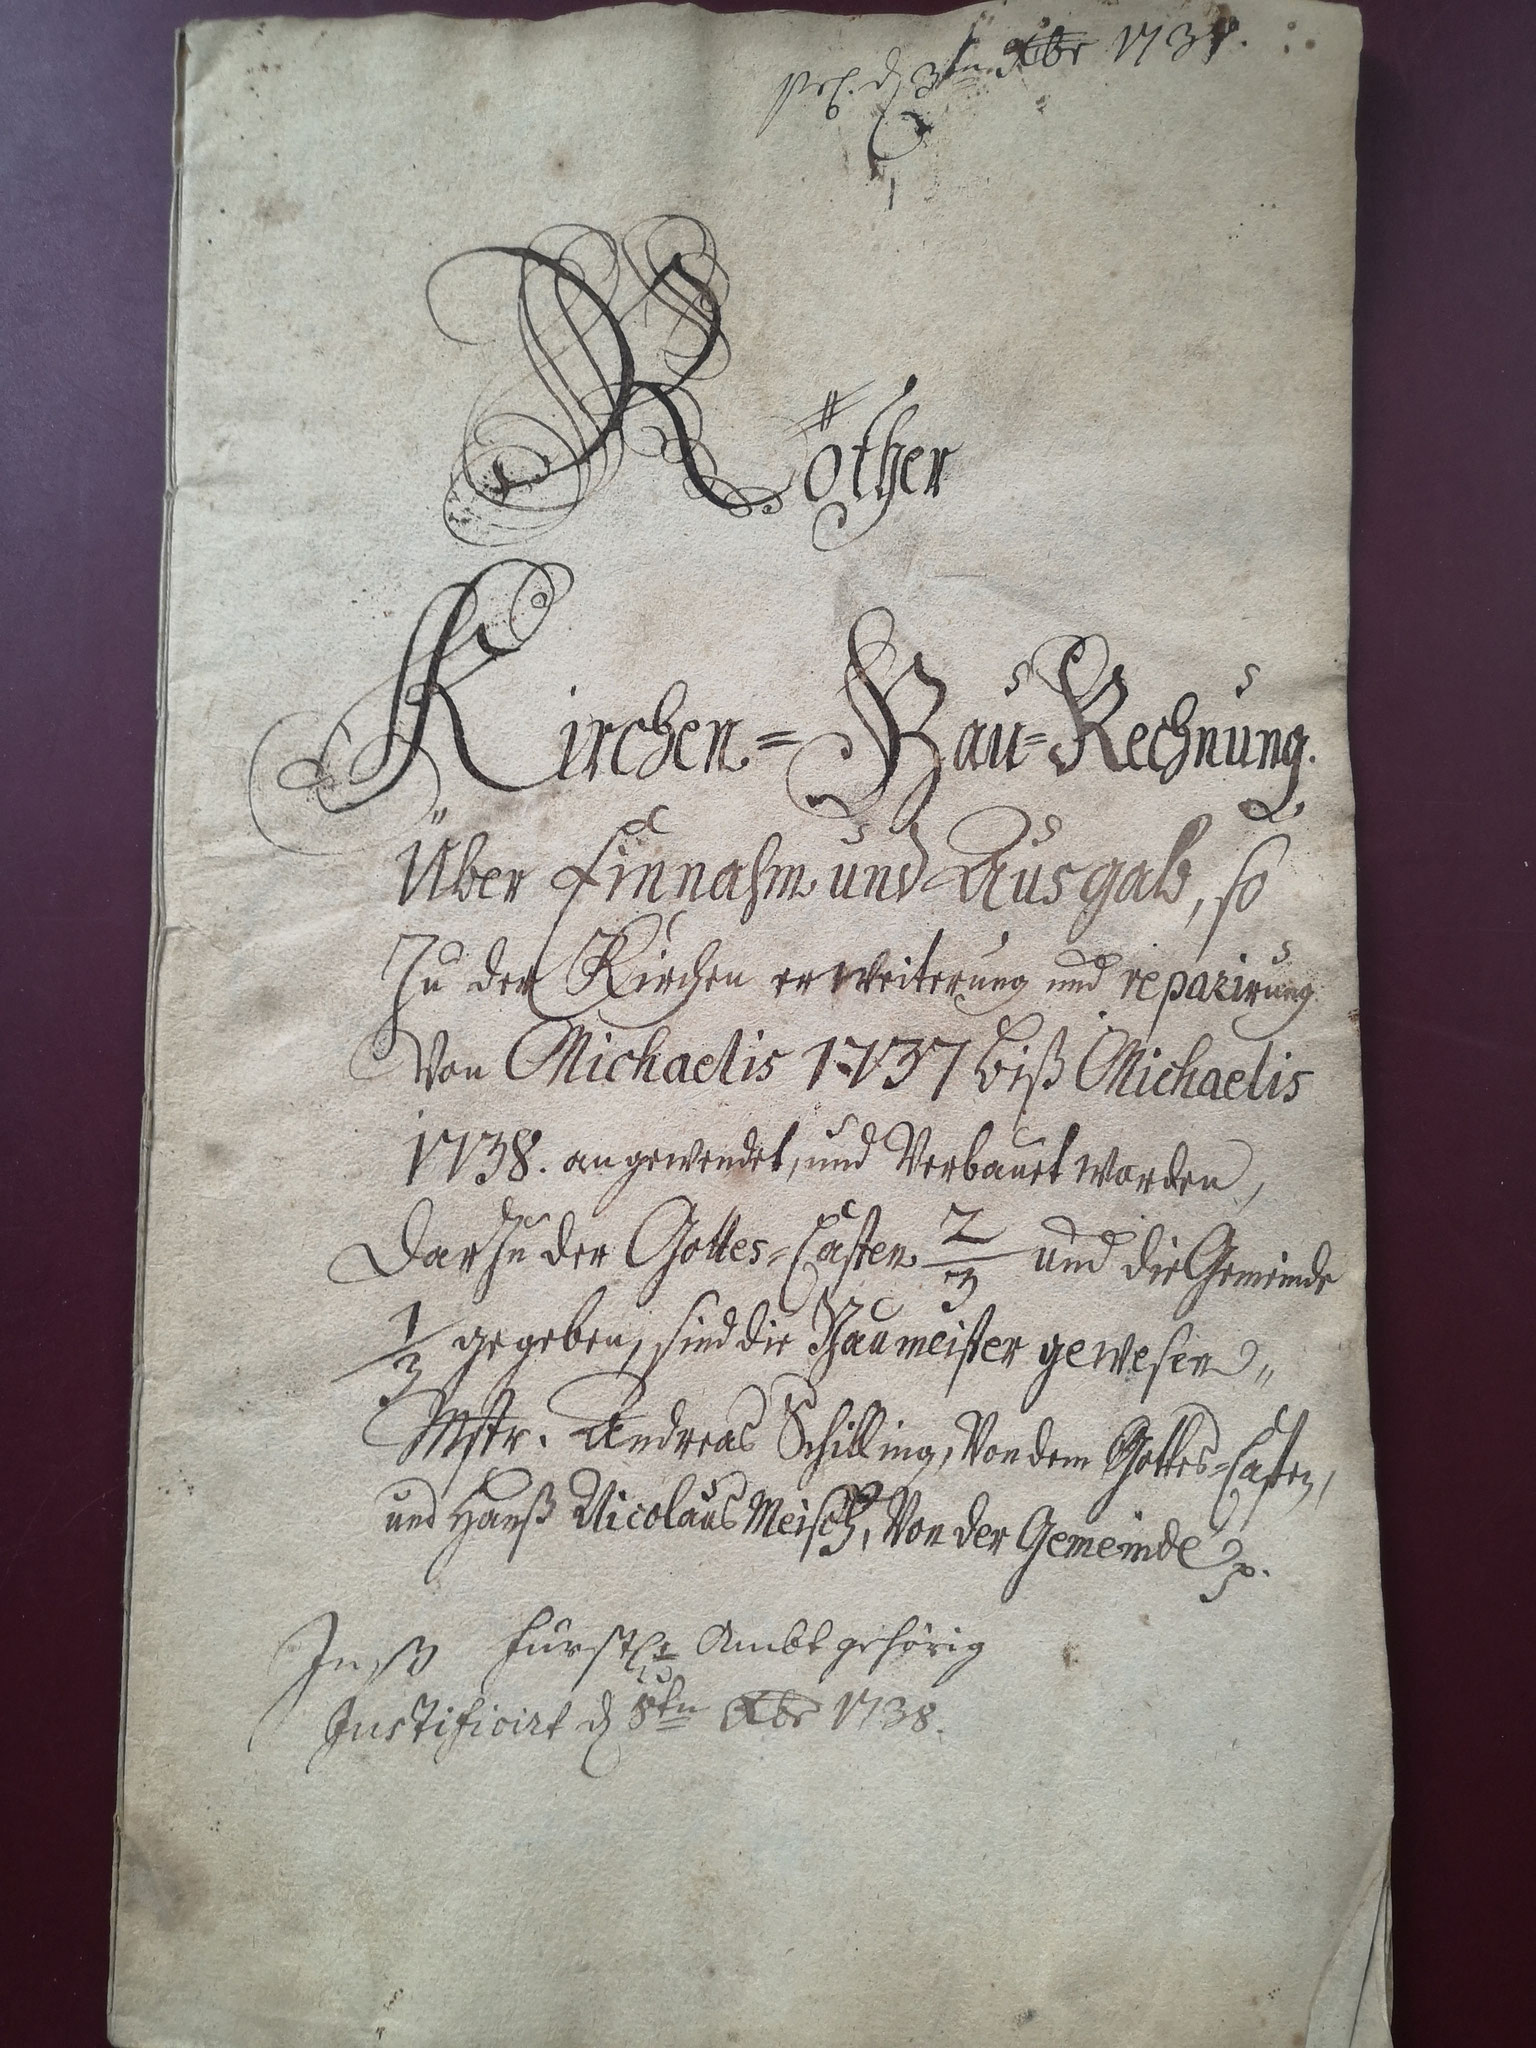 Röther
Kirchen=Bau=Rechnung.
Über Einnahm und Ausgab, so
Zu der Kirchen erweiterung und reparirung
Von Michaelis 1737 biß Michaelis
1738. angewendet, und Verbauet worden,
Darzu der Gottes=Casten 2/3 und die Gemeinde
1/3 gegeben, sind die Baumeister gewesen,,
Mstr. Andreas Schilling, Von dem Gottes=Casten,
und Hanß Nicolaus Meisch, Von der Gemeinde
Inß Fürstl. Ambt gehörig
Justificirt d 8tn Xbr 1738.